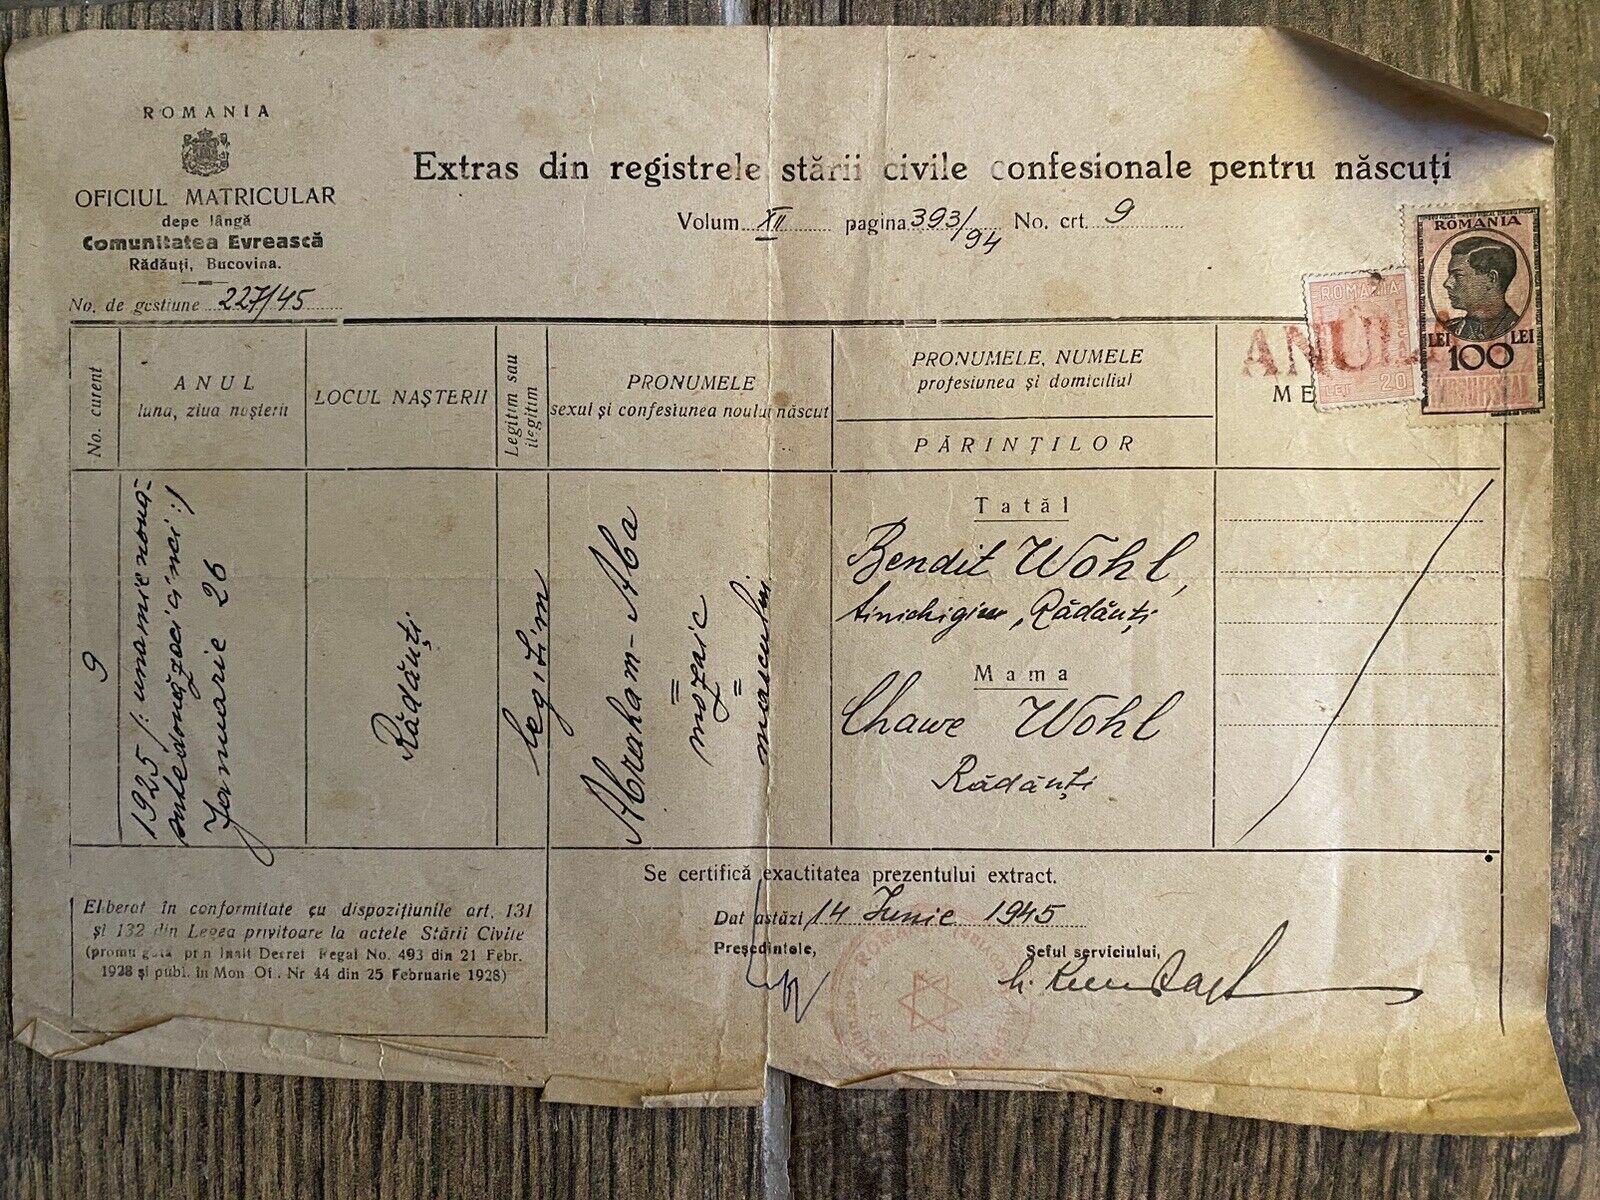 ROMANIA
OFICIUL MATRICULAR
depe lângă
Comunitatea Evrească
Rădăuți, Bucovina.
No. de gestiune 227/45
Extras din registrele stării civile confesionale pentru născuți
Volum XII pagina 393/94 No. crt. 9
ROMANIA
LEI 20
ROMANIA
LEI 100 LEI
TIMBRU FISCAL
No. curent
ANUL
luna, ziua nașterii
LOCUL NAȘTERII
Legitim sau
ilegitim
PRONUMELE
sexul și confesiunea noului născut
PRONUMELE, NUMELE
profesiunea și domiciliul
PĂRINȚILOR
ME
9
1925 /: unamienouă-
sutedouăzecicinci :/
Januarie 26
Rădăuți
legitim
Abraham-Aba
mozaic
masculin
Tatăl
Bendit Wohl,
tinichigiu, Rădăuți
Mama
Chawe Wohl
Rădăuți
Eliberat în conformitate cu dispozițiunile art. 131
și 132 din Legea privitoare la actele Stării Civile
(promulgată prin Înalt Decret Regal No. 493 din 21 Febr.
1928 și publ. în Mon. Of. Nr 44 din 25 Februarie 1928)
Se certifică exactitatea prezentului extract.
Dat astăzi 14 Iunie 1945
Președintele,
Șeful serviciului,